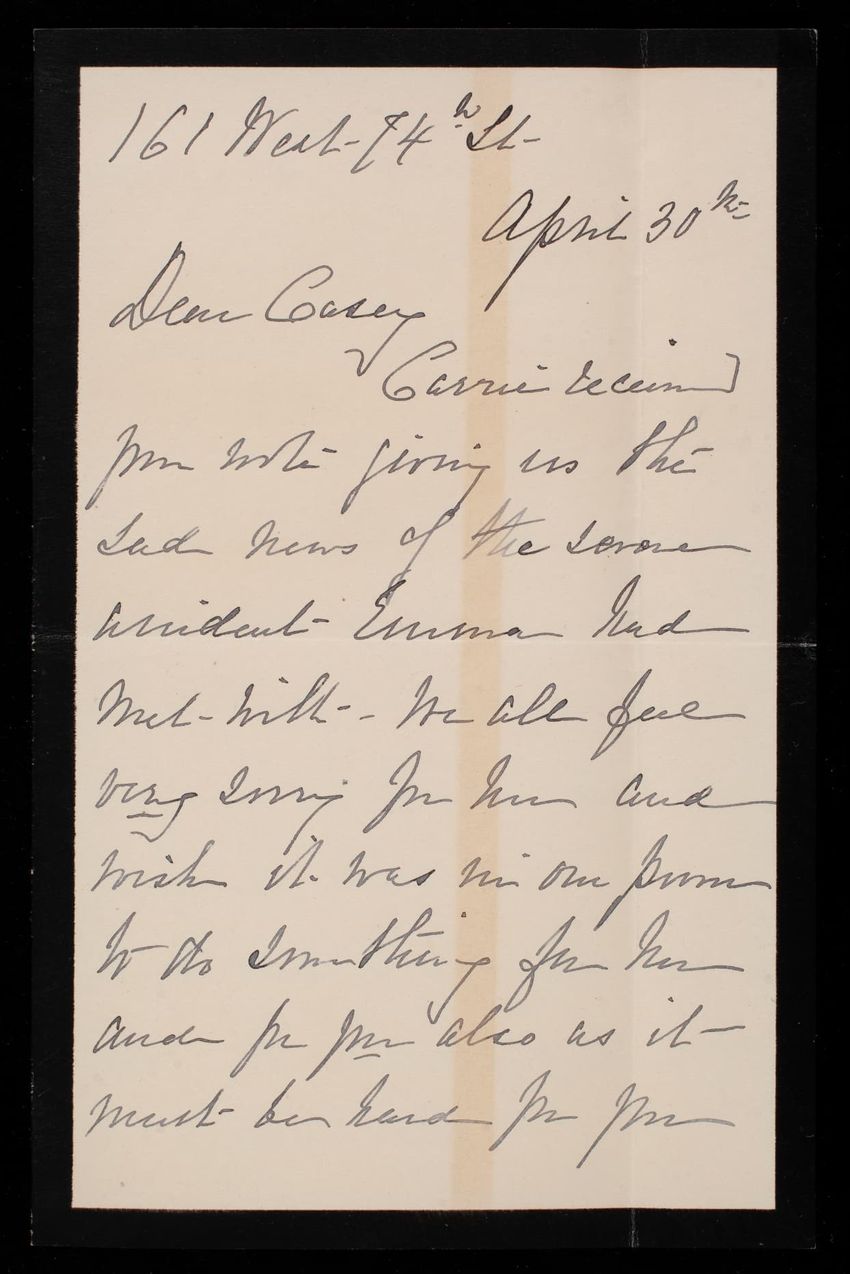 161 West 74th St-
April 30th
Dear Casey
Carrie received
your note giving us the
sad news of the severe
accident Emma had
met with - We all feel
very sorry for her and
wish it was in our power
to do something for her
and for you also as it
must be hard for you